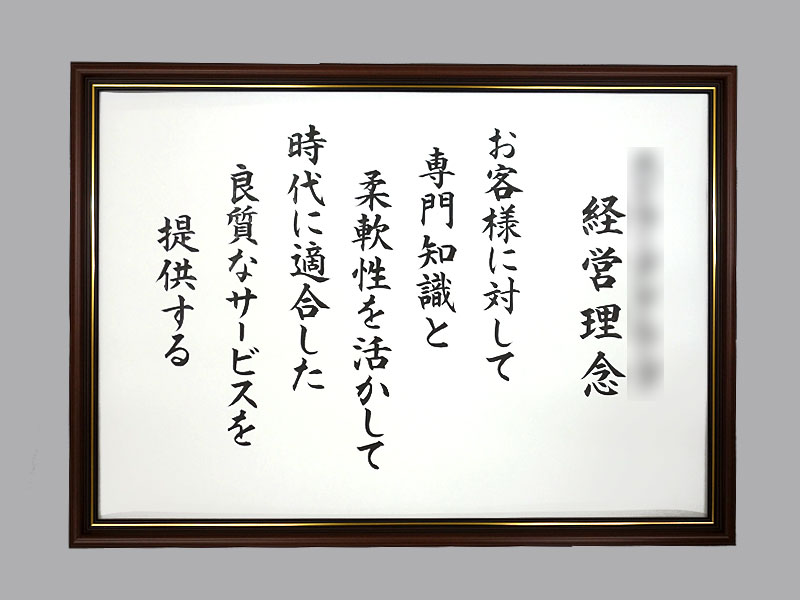 経営理念
お客様に対して
専門知識と
柔軟性を活かして
時代に適合した
良質なサービスを
提供する